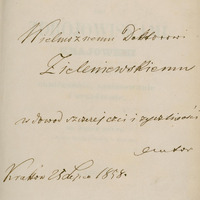 Wielmożnemu Doktorowi
Zieleniewskiemu
w dowód szacunku i życzliwości
Autor
Kraków 25 Lipca 1858.